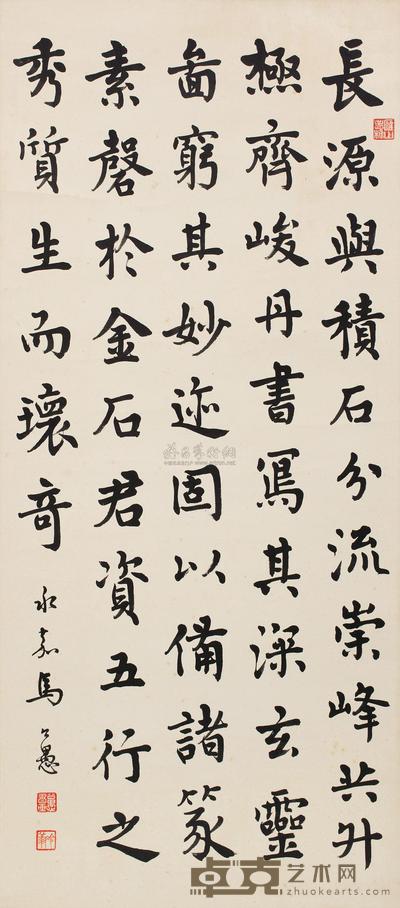 長源與積石分流崇峰共斗
極齊峻丹書寫其深玄靈
啚窮其妙迹固以備諸篆
素磬於金石君資五行之
秀質生而瓌奇
永嘉馬公愚
卓克艺术网
zhuokearts.com